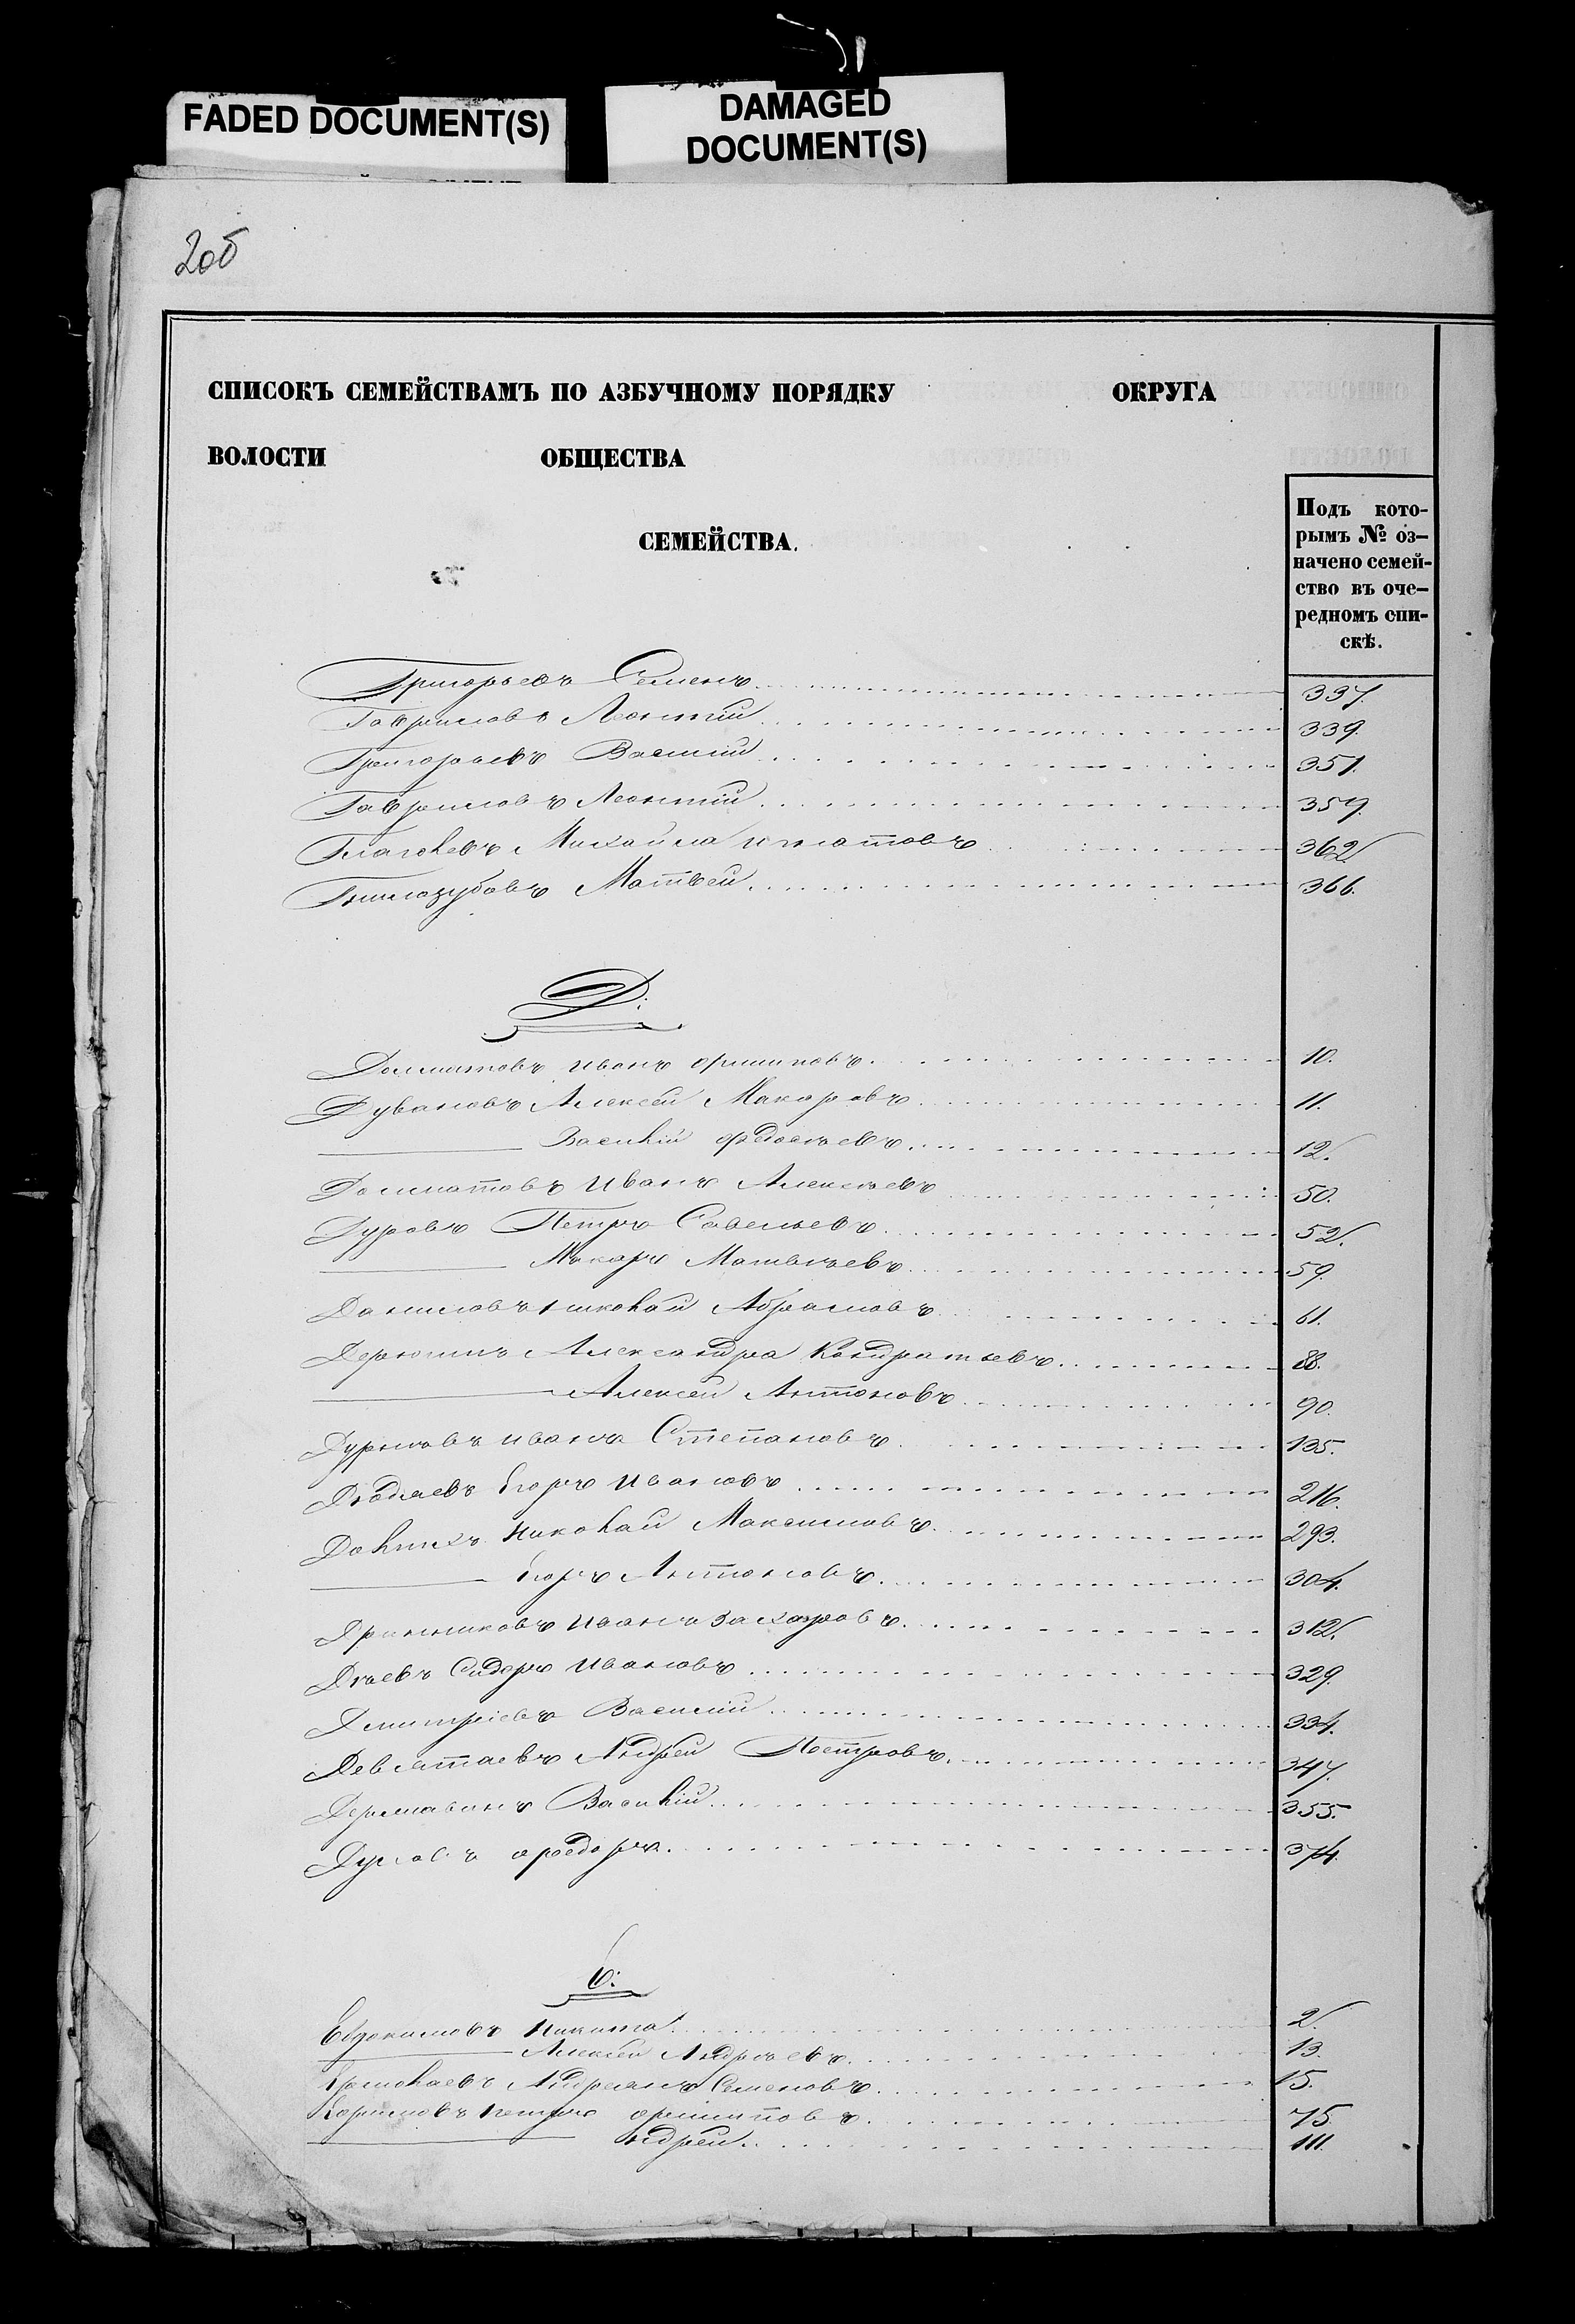 FADED DOCUMENT(S)
DAMAGED
DOCUMENT(S)
2об
СПИСОКЪ СЕМЕЙСТВАМЪ ПО АЗБУЧНОМУ ПОРЯДКУ ОКРУГА
ВОЛОСТИ ОБЩЕСТВА
СЕМЕЙСТВА.
Подъ кото-
рымъ № оз-
начено семей-
ство въ оче-
редномъ спи-
скѣ.
Григорьевъ Семенъ 337.
Гавриловъ Леонтій 339.
Григорьевъ Василій 351.
Гавриловъ Леонтій 359.
Михайла Игнатовъ 362.
Гнилозубовъ Матвей 366.
Д:
Долматовъ Иванъ Филиповъ 10.
Дувановъ Алексей Макаровъ 11.
Василій Федосѣевъ 12.
Долматовъ Иванъ Алексѣевъ 50.
Дуровъ Петръ Савельевъ 52.
Макаръ Матвѣевъ 59.
Даниловъ Николай Абрамовъ 61.
Дерюгинъ Александра Кондратьевъ 88.
Алексей Антоновъ 90.
Дурновъ Иванъ Степановъ 135.
Егоръ Ивановъ 216.
Долгихъ Николай Максимовъ 293.
Егоръ Антоновъ 304.
Иванъ Захаровъ 312.
Сидоръ Ивановъ 329.
Дмитріевъ Василій 334.
Девятаевъ Андрей Петровъ 347.
Державинъ Василій 355.
Федоръ 374.
Е:
Евдокимовъ Никита 2.
Алексей Андрѣевъ 13.
Ермолаевъ Андреянъ Семеновъ 15.
Петръ Филиповъ 75.
Андрей 111.